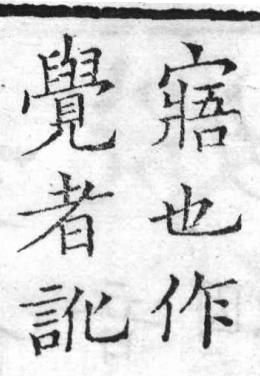 寤也作
覺者訛